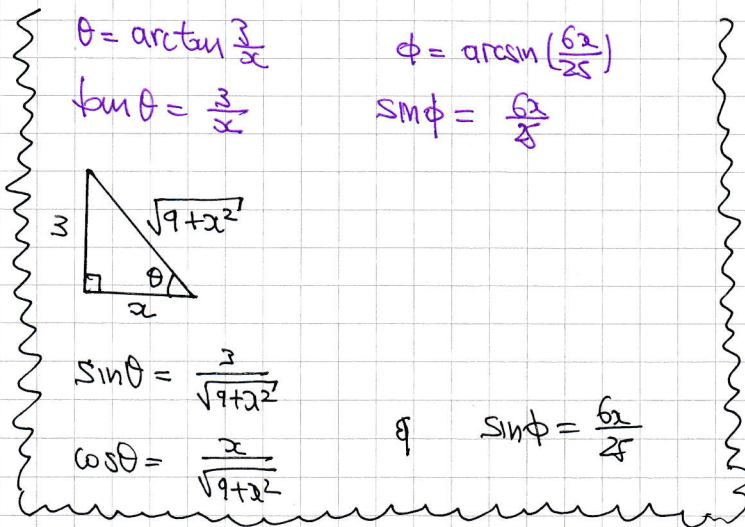 θ = arctan 3/x    φ = arcsin (6x/25)
tan θ = 3/x    sin φ = 6x/25
3    √(9+x²)
θ
x
sin θ = 3/√(9+x²)
cos θ = x/√(9+x²)    &    sin φ = 6x/25